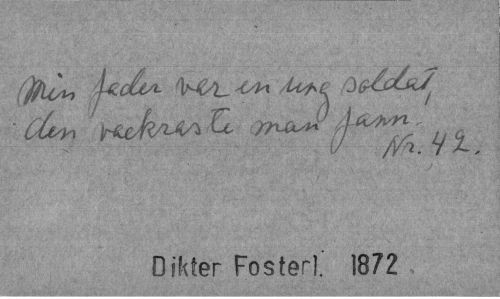 Min fader var en ung soldat,
den vackraste man fann.
Nr. 42.
Dikter Fosterl. 1872